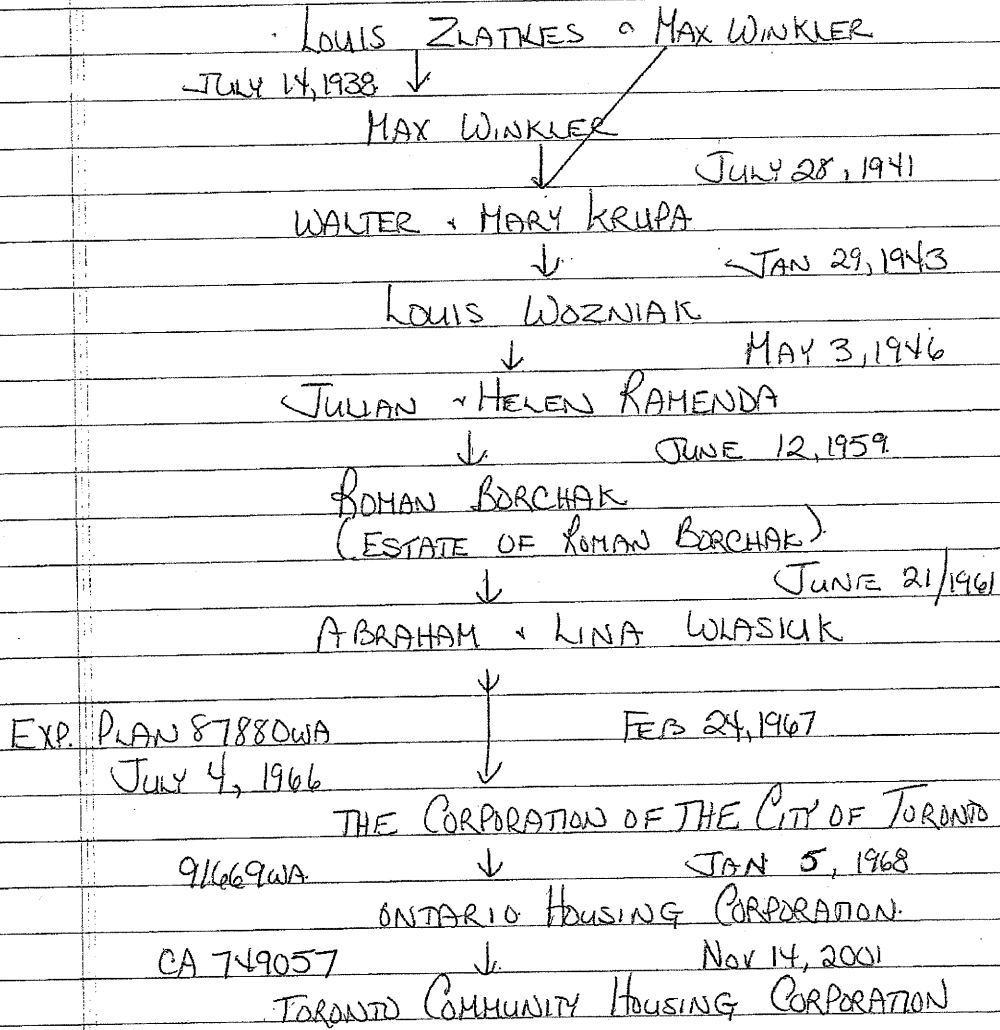 LOUIS ZLATKIES & MAX WINKLER
JULY 14, 1938
MAX WINKLER
JULY 28, 1941
WALTER & MARY KRUPA
JAN 29, 1943
LOUIS WOZNIAK
MAY 3, 1946
JULIAN & HELEN RAMENDA
JUNE 12, 1959
ROMAN BORCHAK
(ESTATE OF ROMAN BORCHAK)
JUNE 21/1961
ABRAHAM & LINA WLASIUK
EXP. PLAN 87880WA FEB 24, 1967
JULY 4, 1966
THE CORPORATION OF THE CITY OF TORONTO
91669WA JAN 5, 1968
ONTARIO HOUSING CORPORATION
CA 749057 NOV 14, 2001
TORONTO COMMUNITY HOUSING CORPORATION